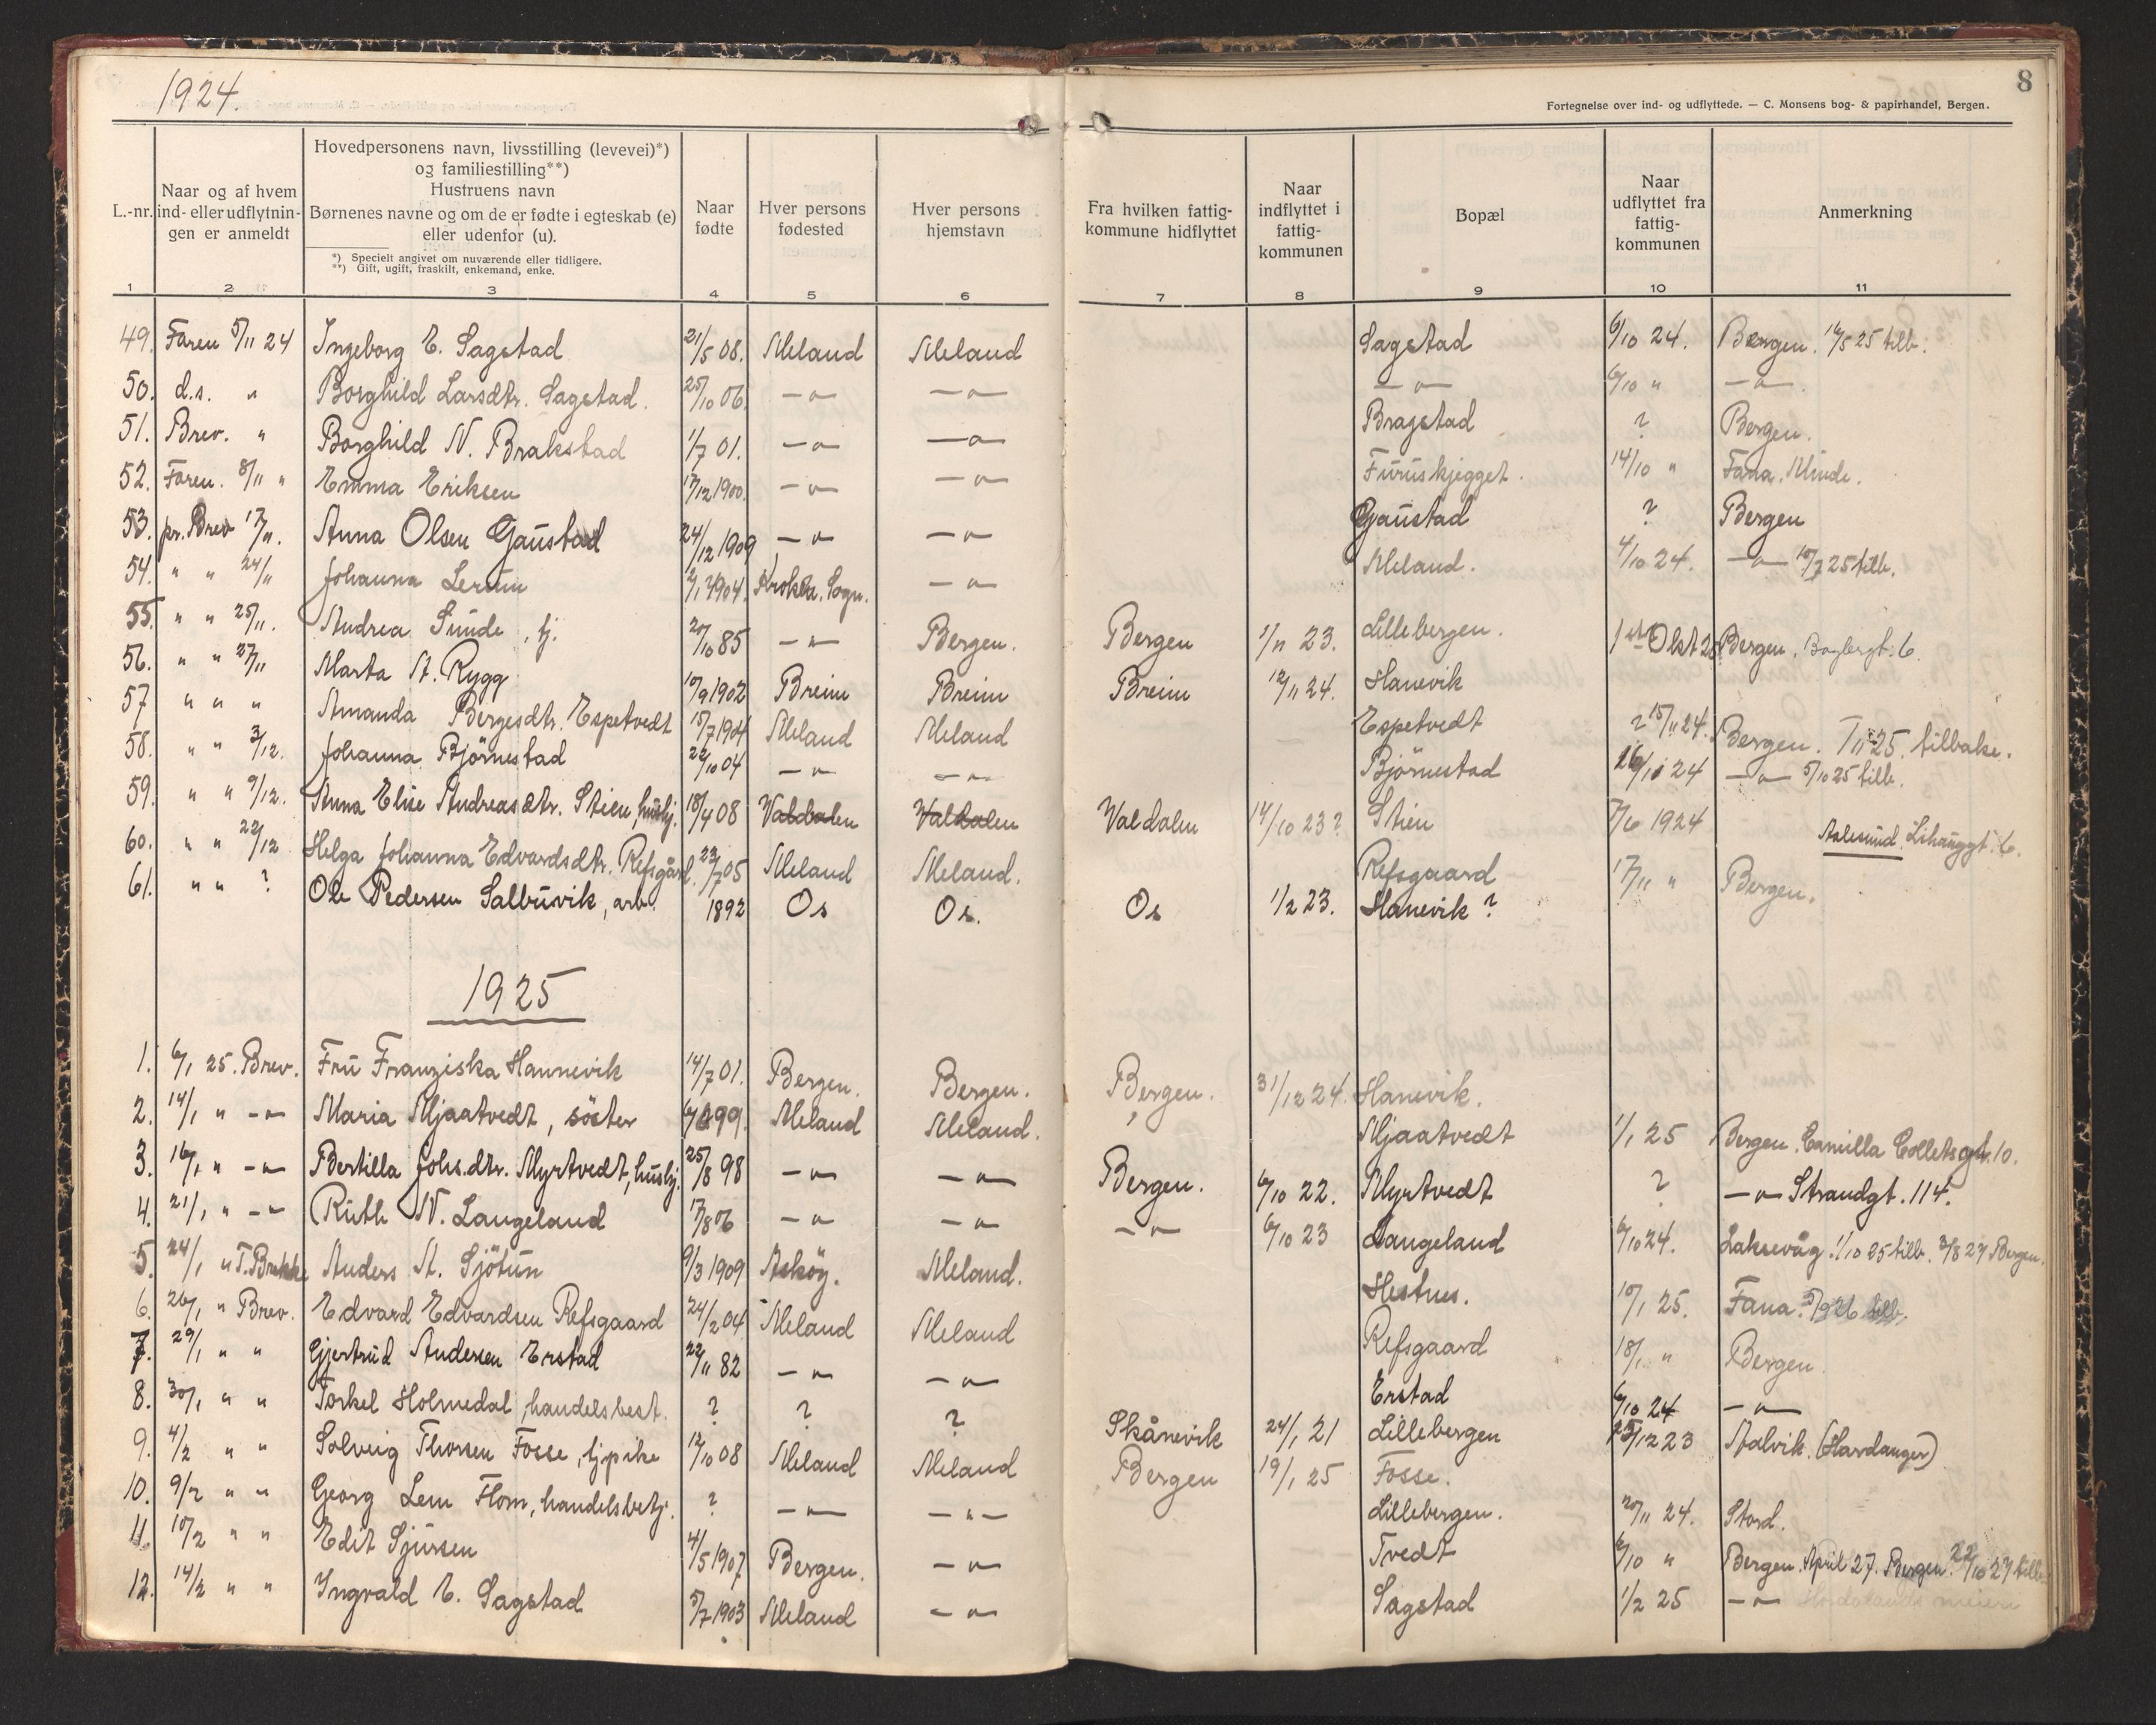 1924.
8
Fortegnelse over ind- og udflyttede. — C. Monsens bog- & papirhandel, Bergen.
L.-nr. | Naar og af hvem ind- eller udflytningen er anmeldt | Hovedpersonens navn, livsstilling (levevei)*) og familiestilling**) Hustruens navn Børnenes navne og om de er fødte i egteskab (e) eller udenfor (u). | Naar fødte | Hver persons fødested | Hver persons hjemstavn | Fra hvilken fattigkommune hidflyttet | Naar indflyttet i fattigkommunen | Bopæl | Naar udflyttet fra fattigkommunen | Anmerkning
*) Specielt angivet om nuværende eller tidligere.
**) Gift, ugift, fraskilt, enkemand, enke.
1 2 3 4 5 6 7 8 9 10 11
49. Faren 5/11 24 Ingeborg E. Sagstad 21/5 08. Meland Meland Sagstad 6/10 24. Bergen. 14/5 25 tilb.
50. d.s. " Borghild Larsdtr. Sagstad. 25/10 06. —"— —"— —"— 6/10 " —"—.
51. Brev. " Borghild N. Brakstad 1/7 01. —"— —"— Bragstad ? Bergen.
52. Faren. 8/11 " Emma Eriksen 17/12 1900. —"— —"— Furuskjegget. 14/10 " Fana. Minde.
53. pr. Brev 17/11. Anna Olsen Gaustad 24/12 1909 —"— —"— Gaustad ? Bergen
54. " " 24/11 Johanna Lerum 1904. Sogn. —"— Meland. 4/10 24. —"— 25 tilb.
55. " " 25/11. Andrea Sunde, tj. 20/10 85 —"— Bergen. Bergen 1/11 23. Lillebergen. Bergen. 6.
56. " " 27/11 Marta A. Rygg 10/9 1902 Breim Breim Breim 12/11 24. Hanevik
57 " " " Amanda Bergesdtr. Espetvedt 15/7 1904 Meland Meland Espetvedt ? 15/11 24. Bergen. 25. tilbake.
58. " " 3/12. Johanna Bjørnestad 22/10 04 —"— —"— Bjørnestad 24 —"— 5/10 25 tilb.
59. " " 9/12. Anna Elise Andreasdtr. Stien, hushj. 18/4 08 Valdalen Valdalen Valdalen 14/10 23? Stien 7/6 1924 Aalesund. Lihauggt. 6.
60. " " 22/12 Helga Johanna Edvardsdtr. Refsgård. 23/7 05 Meland Meland. Refsgaard 17/11 " Bergen.
61. " " ? Ole Pedersen Salbuvik, arb. 1892 Os Os. Os 1/2 23. Hanevik ?
1925
1. 6/1 25. Brev. Fru Franziska Hannevik 14/7 01. Bergen. Bergen. Bergen. 31/12 24. Hanevik.
2. 14/1 " —"— Maria Mjaatvedt, söster 99. Meland Meland. Mjaatvedt 1/1 25 Bergen. Camilla Collets gt. 10.
3. 16/1 " —"— Bertilla Johs.dtr. Myrtvedt, hushj. 25/8 98 —"— —"— Bergen. 6/10 22. Myrtvedt ? —"— Strandgt. 114.
4. 21/1 " —"— Ruth N. Langeland 17/8 06 —"— —"— —"— 6/10 23 Langeland 6/10 24. Laksevåg. 1/10 25 tilb. 3/8 27 Bergen.
5. 24/1 " T. Brakke Anders A. Sjötun 9/3 1909 Askøy. Meland. Hestnes. 10/1 25. Fana. 26 tilb.
6. 26/1 " Brev. Edvard Edvardsen Refsgaard 24/2 04. Meland Meland Refsgaard 18/1 " Bergen.
7. 29/1 " " Gjertrud Andersen Erstad 22/11 82 —"— —"— Erstad 6/10 24 —"—
8. 30/1 " " Torkel Holmedal, handelsbest. ? ? ? Skånevik 24/1 21 Lillebergen 12 23 Aalvik. (Hardanger)
9. 4/2 " " Solveig Thorsen Fosse, tjpike 12/10 08 Meland Meland Bergen 19/1 25 Fosse.
10. 9/2 " " Georg Lem Flom, handelsbetj. ? —"— —"— Lillebergen. 20/11 24. Stord.
11. 10/2 " " Edit Sjursen 4/5 1907 Bergen. —"— Tvedt 6/10 " Bergen. April 27. Bergen. 22/10 27 tilb.
12. 14/2 " " Ingvald E. Sagstad 5/7 1903 Meland —"— Sagstad 1/2 25 —"— Hordalands meieri